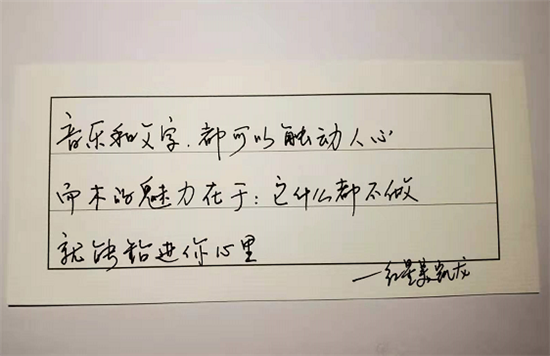 音乐和文字.都可以触动人心
而木的魅力在于:它什么都不做
就能钻进你心里
—红星美凯龙